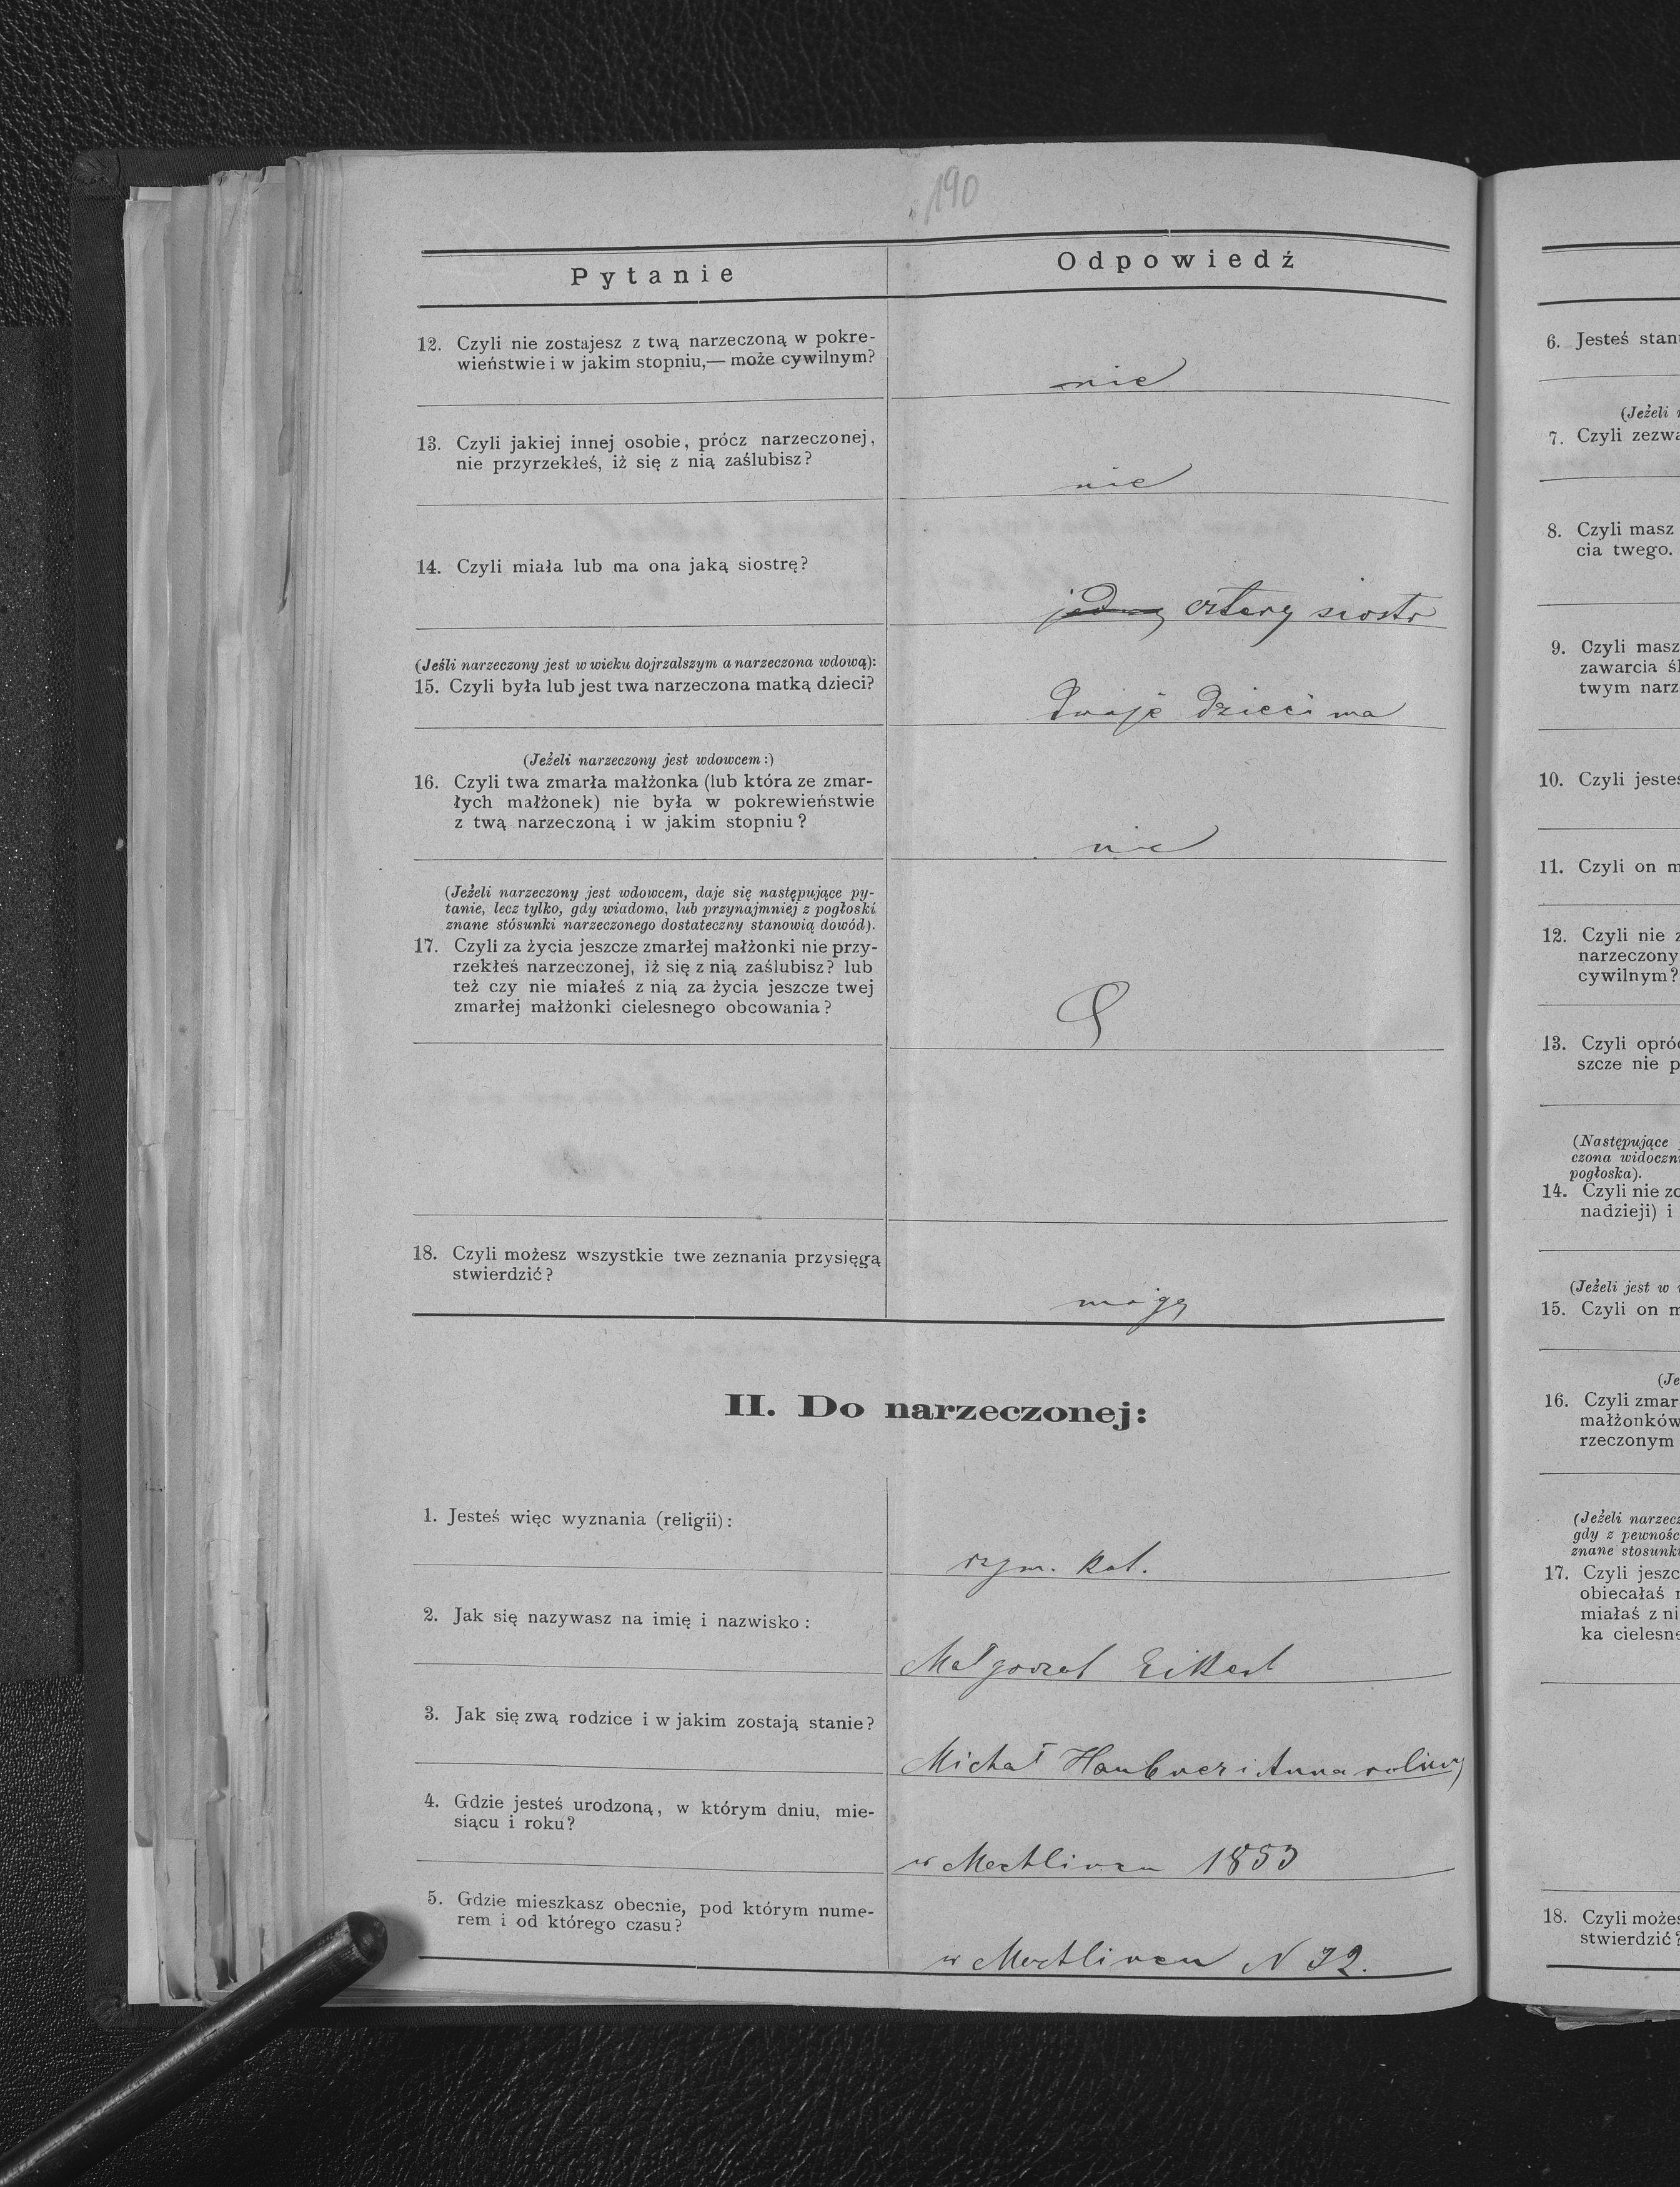 190
Pytanie
Odpowiedź
12. Czyli nie zostajesz z twą narzeczoną w pokre-
wieństwie i w jakim stopniu,— może cywilnym?
nie
13. Czyli jakiej innej osobie, prócz narzeczonej,
nie przyrzekłeś, iż się z nią zaślubisz?
nie
14. Czyli miała lub ma ona jaką siostrę?
jedną cztery siostr
(Jeśli narzeczony jest w wieku dojrzalszym a narzeczona wdową):
15. Czyli była lub jest twa narzeczona matką dzieci?
Dwoje dzieci ma
(Jeżeli narzeczony jest wdowcem:)
16. Czyli twa zmarła małżonka (lub która ze zmar-
łych małżonek) nie była w pokrewieństwie
z twą narzeczoną i w jakim stopniu?
nie
(Jeżeli narzeczony jest wdowcem, daje się następujące py-
tanie, lecz tylko, gdy wiadomo, lub przynajmniej z pogłoski
znane stósunki narzeczonego dostateczny stanowią dowód).
17. Czyli za życia jeszcze zmarłej małżonki nie przy-
rzekłeś narzeczonej, iż się z nią zaślubisz? lub
też czy nie miałeś z nią za życia jeszcze twej
zmarłej małżonki cielesnego obcowania?
18. Czyli możesz wszystkie twe zeznania przysięgą
stwierdzić?
mogę
II. Do narzeczonej:
1. Jesteś więc wyznania (religii):
rzym. kat.
2. Jak się nazywasz na imię i nazwisko:
Małgorzat Eikert
3. Jak się zwą rodzice i w jakim zostają stanie?
Michał Haubner i Anna rolnicy
4. Gdzie jesteś urodzoną, w którym dniu, mie-
siącu i roku?
w 1853
5. Gdzie mieszkasz obecnie, pod którym nume-
rem i od którego czasu?
w N 32.
6. Jesteś stan
(Jeżeli
7. Czyli zezwa
8. Czyli masz
cia twego.
9. Czyli masz
zawarcia śl
twym narz
10. Czyli jesteś
11. Czyli on m
12. Czyli nie z
narzeczony
cywilnym?
13. Czyli opróc
szcze nie p
(Następujące
czona widoczni
pogłoska).
14. Czyli nie zo
nadzieji) i
(Jeżeli jest w
15. Czyli on m
(Je
16. Czyli zmar
małżonków
rzeczonym
(Jeżeli narzecz
gdy z pewnośc
znane stosunki
17. Czyli jeszc
obiecałaś
miałaś z ni
ka cielesne
18. Czyli możes
stwierdzić?